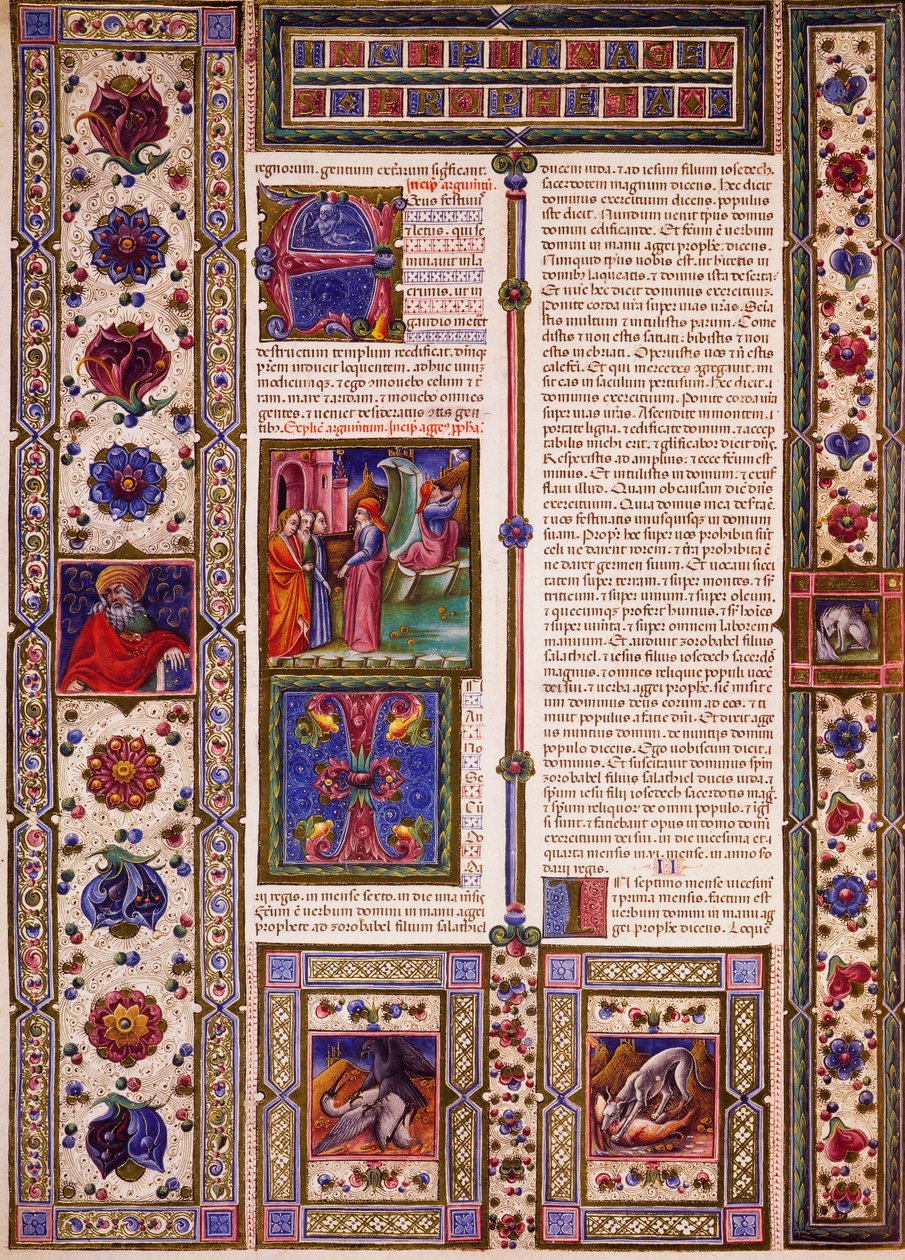 INCIPIT AGEV
S PROPHETA
regnorum. gentium
A
geus festiuꝰ
⁊ letus. qui se
minauit in la
crimis. ut in
gaudio metet
destructum templum redificat. dmq̄
prem introducit loquentem. adhuc unū
modicumqꝫ. ⁊ ego mouebo celum ⁊ t̄
ram. mare ⁊ aridam. ⁊ mouebo omnes
gentes. ⁊ ueniet desideratus gen
tibꝰ. Explic̄ argumtum. Incip̄ agge pp̄ha.
I
An
no
Se
Cū
Do
Da
rii regis. in mense sexto. in die una mēse
fctum ē uerbum domini in manu aggei
prophete ad zorobabel filium salathiel
ducem iuda. ⁊ ad iesum filium iosedech.
sacerdotem magnum dicens. hec dicit
dominus exercituum dicens. populus
iste dicit. Nundum uenit tp̄us domus
domini edificande. Et fctum ē uerbum
domini in manu aggei prophe. dicens.
Nunquid tp̄us uobis est. ut hitetis in
domibꝰ laqueatis. ⁊ domus ista deserta.
Et nūc hec dicit dominus exercituum.
ponite corda urā super uias urās. Semia
stis multum ⁊ intulistis parum. Come
distis ⁊ non estis satiati. bibistis ⁊ non
estis inebriati. Operuistis uos ⁊ nō estis
calefti. Et qui mercedes agregauit. mi
sit eas in saculum pertusum. Hec dicit .
dominus exercituum. ponite corda urā
super uias urās. Ascendite in montem. ⁊
portate ligna. ⁊ edificate domum. ⁊ accep
tabilis michi erit. ⁊ glificabor dicit dn̄s.
Respexistis ad amplius. ⁊ ecce fctum est
minus. Et intulistis in domum. ⁊ exuf
flaui illud. Quam ob causam dic̄ dn̄s
exercituum. Quia domus mea desta ē.
⁊ uos festinatis unusquisqꝫ in domum
suam. Propt̄ hec super uos prohibiti sūt
celi ne darent rorem. ⁊ tr̄a prohibita ē
ne daret germen suum. Et uocaui sicci
tatem super terram. ⁊ super montes. ⁊ sr̄
triticum. ⁊ super uinum. ⁊ super oleum.
⁊ quecumqꝫ profert humus. ⁊ sr̄ hoīes
⁊ super iumta. ⁊ super omnem laborem
manuum. Et audiuit zorobabel filius
salathiel. ⁊ iesus filius iosedech sacerdos
magnus. ⁊ omnes reliquie populi uocē
dei sui. ⁊ uerba aggei prophe. sicut misit
dominus deus eorum ad eos. ⁊ ti
muit populus a facie dn̄i. Et dixit agge
us nuntius domini. de nuntiis domini
populo dicens. Ego uobiscum dicit .
dominus. Et suscitauit dominus spm̄
zorobabel filius salathiel ducis iuda. ⁊
spm̄ iesu filii iosedech sacerdotis mag.
⁊ spm̄ reliquorꝫ de omni populo. ⁊ īgre
si sunt. ⁊ faciebant opus in domo domi
exercituum dei sui. in die uicesima et.
quarta mensis in mense. in anno sc̄do
darii regis.
II
IN septimo mense uicesima
⁊ prima mensis. factum est
uerbum domini in manu ag
gei prophe dicens. Loquere